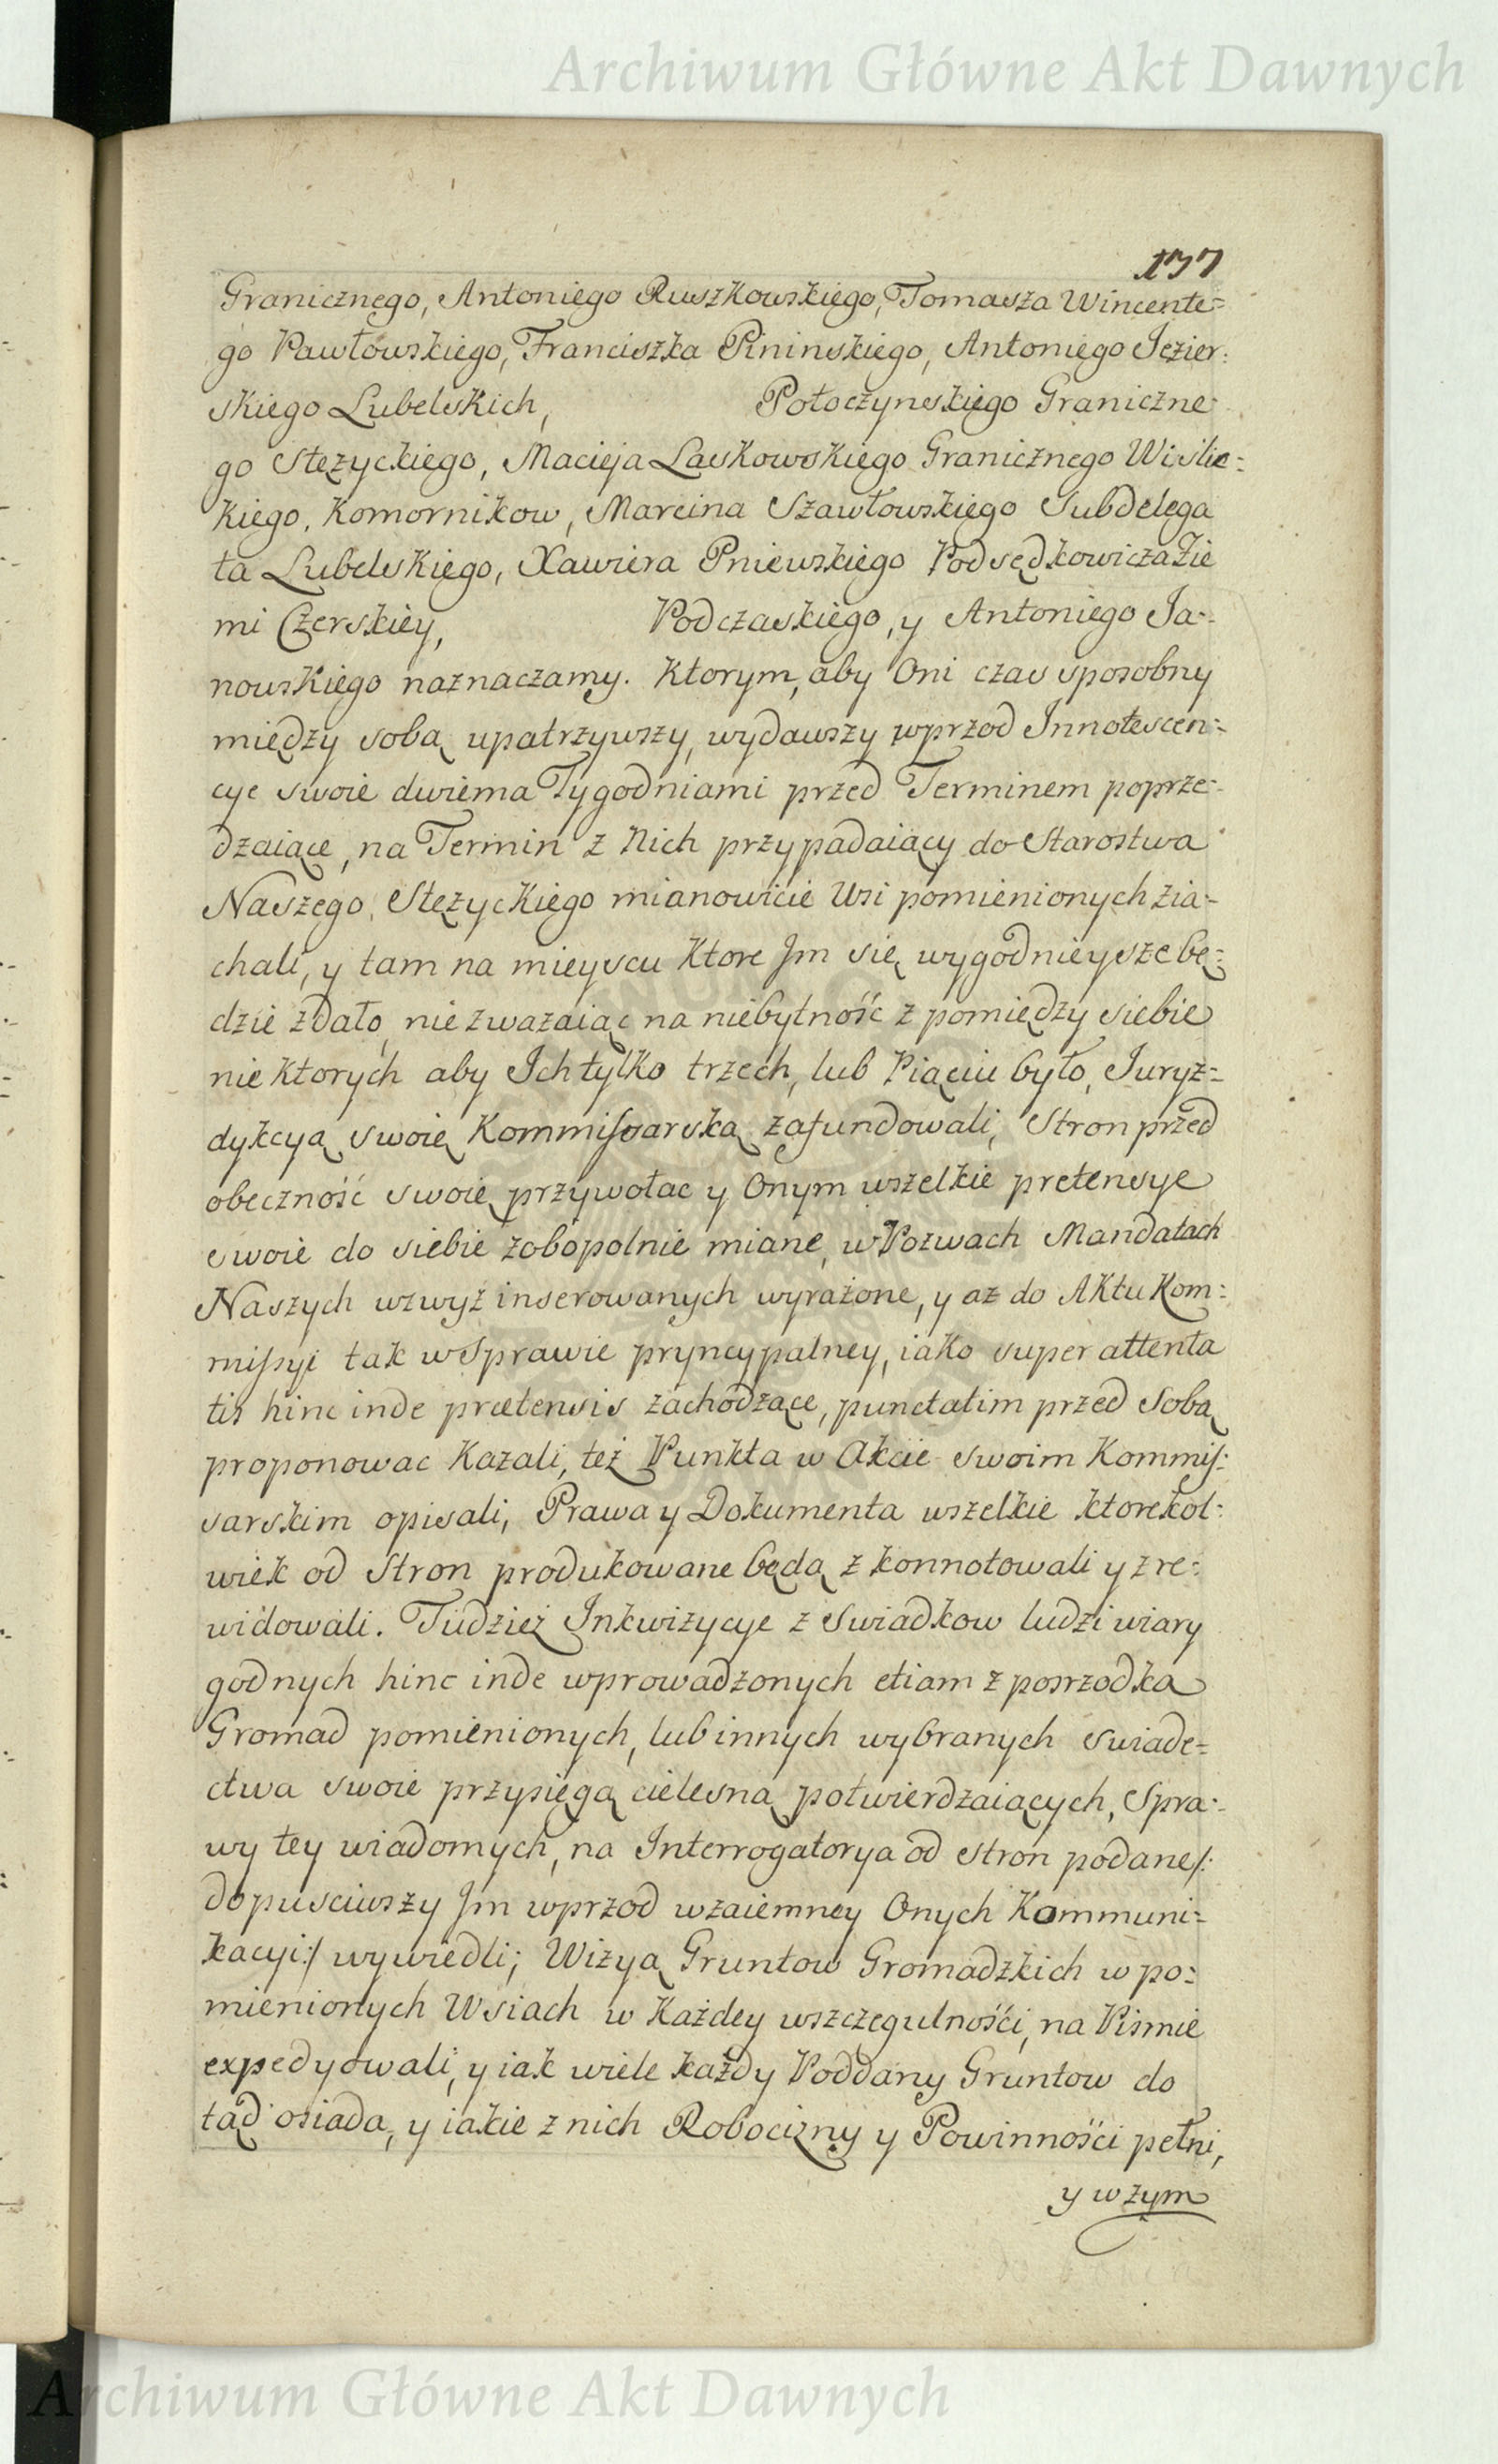 Archiwum Główne Akt Dawnych
177
Granicznego, Antoniego Ruszkowskiego, Tomasza Wincente=
go Pawłowskiego, Franciszka Pininskiego, Antoniego Jezier:
skiego Lubelskich, Potoczynskiego Graniczne
go Stężyckiego, Macieja Laskowskiego Granicznego Wislic=
kiego, Komornikow, Marcina Szawłowskiego Subdelega
ta Lubelskiego, Xawiera Pniewskiego Podsędkowicza Zie
mi Czerskiey, Podczaskiego, y Antoniego Ja=
nowskiego naznaczamy. Ktorym, aby Oni czas sposobny
między sobą upatrzywszy, wydawszy wprzod Innotescen=
cye swoie dwiema Tygodniami przed Terminem poprze=
dzaiące, na Termin z Nich przypadaiący do Starostwa
Naszego Stężyckiego mianowicie Wsi pomienionych zia=
chali, y tam na mieyscu Ktore Im się wygodnieysze bę=
dzie zdało, nie zwazaiąc na niebytność z pomiędzy siebie
nie Ktorych aby Ich tylko trzech, lub Piąciu było, Juryz=
dykcyą swoię Kommissarską zafundowali, Stron przed
obeczność swoię przywołac y Onym wszelkie pretensye
swoie do siebie zobopolnie miane, w Pozwach Mandatach
Naszych wzwyż inserowanych wyrażone, y az do Aktu Kom=
missyi tak w Sprawie pryncypalney, iako super attenta
tis hinc inde prætensis zachodzące, punctatim przed Sobą
proponowac Kazali, też Punkta w Akcie swoim Kommis:
sarskim opisali, Prawa y Dokumenta wszelkie ktorekol=
wiek od Stron produkowane będą zkonnotowali y zre=
widowali. Tudzież Inkwizycye z Swiadkow ludzi wiary
godnych hinc inde wprowadzonych etiam z posrzodka
Gromad pomienionych, lub innych wybranych swiade=
ctwa swoie przysięgą cielesną potwierdzaiących, Spra=
wy tey wiadomych, na Interrogatorya od Stron podane/:
dopusciwszy Im wprzod wzaiemney Onych Kommuni=
kacyi:/ wywiedli; Wizyą Gruntow Gromadzkich w po=
mienionych Wsiach w Każdey wszczegulności, na Pismie
expedyowali, y iak wiele każdy Poddany Gruntow do
tąd osiada, y iakie z nich Robocizny y Powinności pełni,
y w zym
Archiwum Główne Akt Dawnych